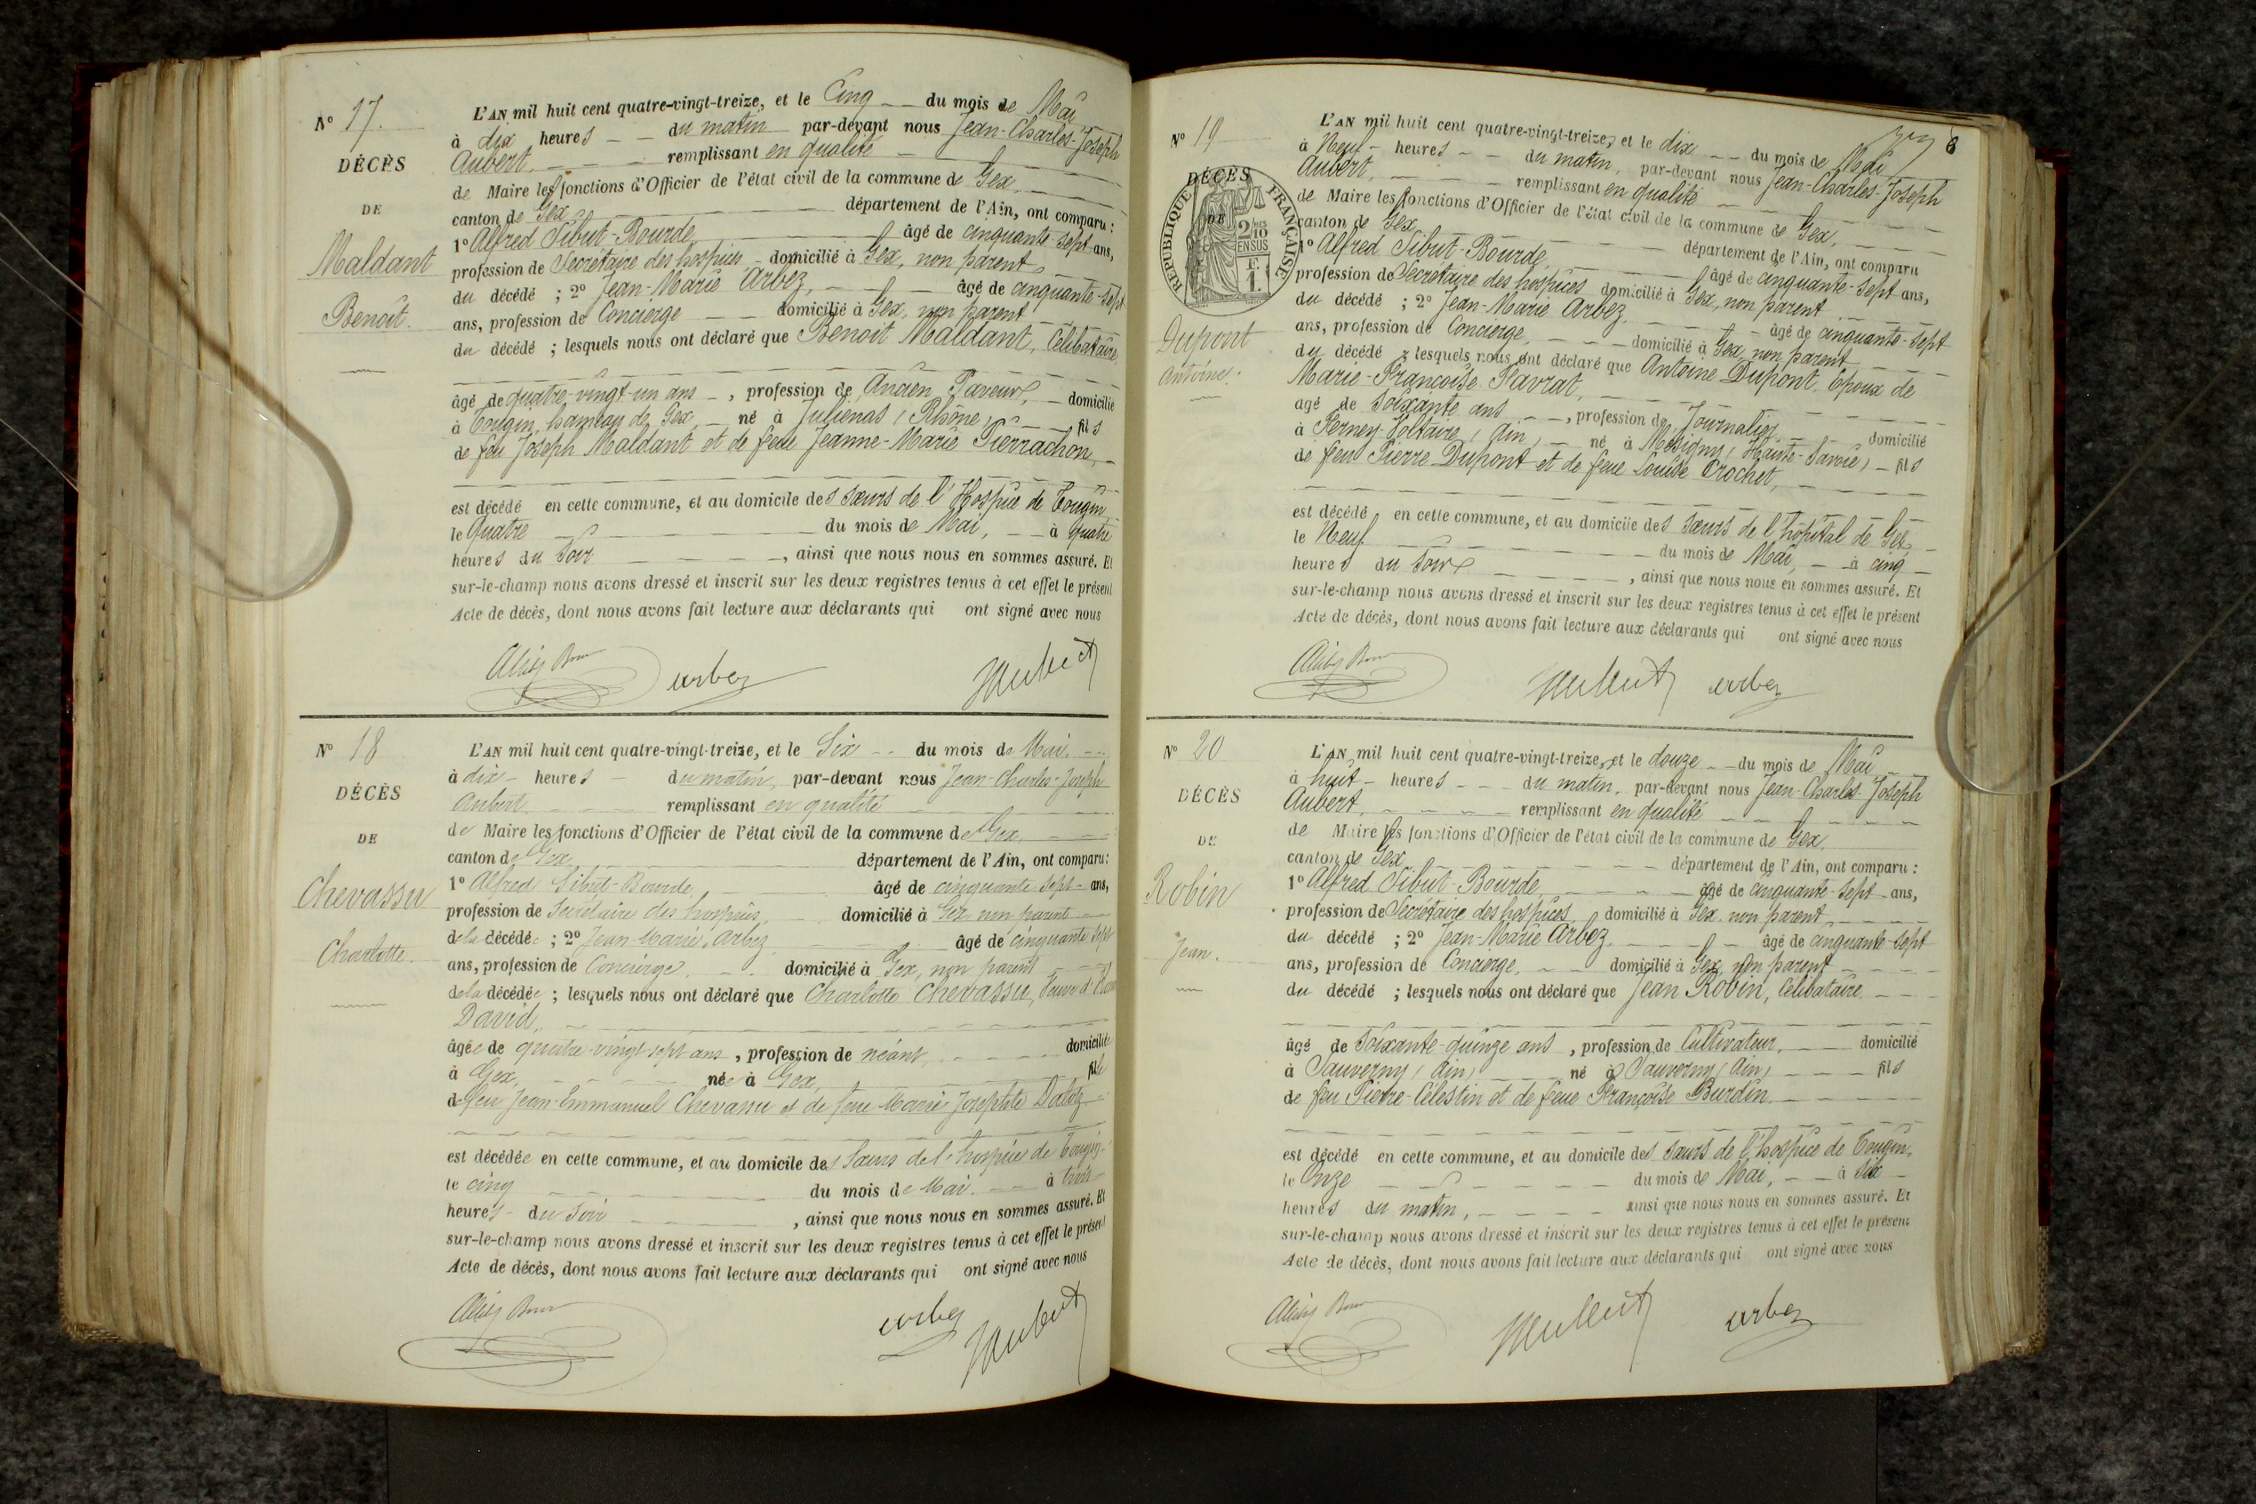 N° 17.
DÉCÈS
DE
Maldant
Benoit.
L'AN mil huit cent quatre-vingt-treize, et le Cinq du mois de Mai
à dix heures du matin par-devant nous Jean-Charles-Joseph
Aubert, remplissant en qualité
de Maire les fonctions d'Officier de l'état civil de la commune de Gex,
canton de Gex département de l'Ain, ont comparu :
1° Alfred Sibut-Bourde âgé de cinquante-sept ans,
profession de Secrétaire des hospices domicilié à Gex, non parent
du décédé ; 2° Jean-Marie Arbez, âgé de cinquante-sept
ans, profession de Concierge domicilié à Gex, non parent
du décédé ; lesquels nous ont déclaré que Benoit Maldant, Célibataire,
âgé de quatre-vingt-un ans, profession de Ancien Paveur, domicilié
à Tougin, hameau de Gex, né à Julienas (Rhône) fils
de feu Joseph Maldant et de feue Jeanne-Marie Pierrachon,
est décédé en cette commune, et au domicile des sœurs de l'Hospice de Tougin
le Quatre du mois de Mai, à quatre
heures du soir, ainsi que nous nous en sommes assuré. Et
sur-le-champ nous avons dressé et inscrit sur les deux registres tenus à cet effet le présent
Acte de décès, dont nous avons fait lecture aux déclarants qui ont signé avec nous
arbez
N° 18
DÉCÈS
DE
Chevassu
Charlotte.
L'AN mil huit cent quatre-vingt-treize, et le Six du mois de Mai.
à dix heures du matin, par-devant nous Jean-Charles-Joseph
Aubert remplissant en qualité
de Maire les fonctions d'Officier de l'état civil de la commune de Gex,
canton de Gex département de l'Ain, ont comparu :
1° Alfred Sibut-Bourde, âgé de cinquante-sept ans,
profession de Secrétaire des hospices, domicilié à Gex non parent
de la décédée ; 2° Jean-Marie Arbez âgé de cinquante sept
ans, profession de Concierge, domicilié à Gex, non parent
de la décédée ; lesquels nous ont déclaré que Charlotte Chevassu, Veuve d'
David,
âgée de quatre-vingt-sept ans, profession de néant, domiciliée
à Gex, née à Gex, fille
de feu Jean-Emmanuel Chevassu et de feue Marie Josephte Dalloz
est décédée en cette commune, et au domicile des Sœurs de l'hospice de Tougin,
le cinq du mois de Mai. à trois
heures du soir, ainsi que nous nous en sommes assuré. Et
sur-le-champ nous avons dressé et inscrit sur les deux registres tenus à cet effet le présent
Acte de décès, dont nous avons fait lecture aux déclarants qui ont signé avec nous
arbez
N° 19
DÉCÈS
DE
RÉPUBLIQUE FRANÇAISE
2/10 EN SUS
F. 1.
Dupont
Antoine.
8
L'AN mil huit cent quatre-vingt-treize, et le dix du mois de Mai
à Neuf heures du matin, par-devant nous Jean-Charles-Joseph
Aubert, remplissant en qualité
de Maire les fonctions d'Officier de l'état civil de la commune de Gex,
canton de Gex département de l'Ain, ont comparu
1° Alfred Sibut-Bourde âgé de cinquante-sept ans,
profession de Secrétaire des hospices domicilié à Gex, non parent
du décédé ; 2° Jean-Marie Arbez, âgé de cinquante-sept
ans, profession de Concierge, domicilié à Gex non parent
du décédé ; lesquels nous ont déclaré que Antoine Dupont, Epoux de
Marie-Françoise Favrat,
âgé de soixante ans, profession de Journalier domicilié
à Ferney-Voltaire (Ain) né à Mésigny (Haute-Savoie) fils
de feu Pierre Dupont et de feue Louise Crochet,
est décédé en cette commune, et au domicile des sœurs de l'hôpital de Gex
le Neuf du mois de Mai, à cinq
heures du soir, ainsi que nous nous en sommes assuré. Et
sur-le-champ nous avons dressé et inscrit sur les deux registres tenus à cet effet le présent
Acte de décès, dont nous avons fait lecture aux déclarants qui ont signé avec nous
arbez
N° 20
DÉCÈS
DE
Robin
Jean.
L'AN mil huit cent quatre-vingt-treize, et le douze du mois de Mai
à huit heures du matin, par-devant nous Jean-Charles-Joseph
Aubert, remplissant en qualité
de Maire les fonctions d'Officier de l'état civil de la commune de Gex.
canton de Gex département de l'Ain, ont comparu :
1° Alfred Sibut-Bourde, âgé de cinquante-sept ans,
profession de Secrétaire des hospices domicilié à Gex, non parent
du décédé ; 2° Jean-Marie Arbez âgé de cinquante-sept
ans, profession de Concierge, domicilié à Gex, non parent
du décédé ; lesquels nous ont déclaré que Jean Robin, Célibataire
âgé de soixante-quinze ans, profession de Cultivateur, domicilié
à Sauverny (Ain) né à Sauverny (Ain) fils
de feu Pierre-Célestin et de feue Françoise Burdin
est décédé en cette commune, et au domicile des sœurs de l'hospice de Tougin,
le Onze du mois de Mai, à six
heures du matin, ainsi que nous nous en sommes assuré. Et
sur-le-champ nous avons dressé et inscrit sur les deux registres tenus à cet effet le présent
Acte de décès, dont nous avons fait lecture aux déclarants qui ont signé avec nous
arbez